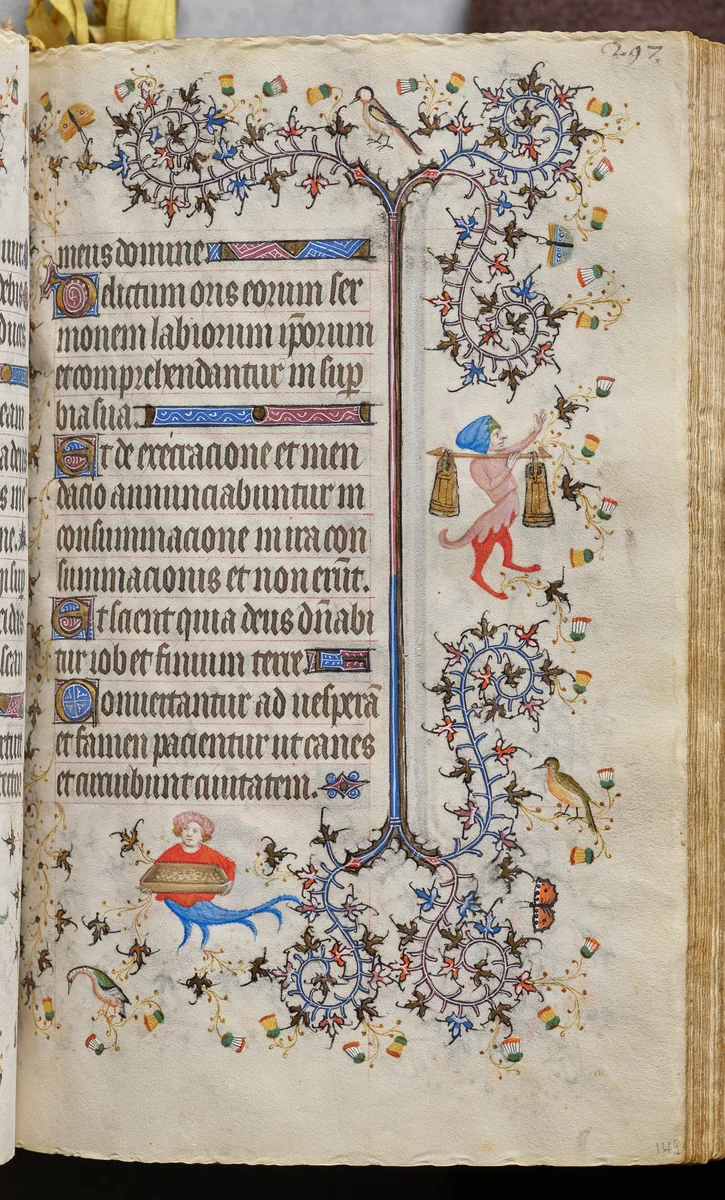 297.
meus domine
Delictum oris eorum ser
monem labiorum ip̄orum
et comprehendantur in sup̲
bia sua.
Et de execracione et men
dacio annunciabuntur in
consummacione in ira con
summacionis et non erūt.
Et scient quia deus dn̄abi
tur iob et finium terre.
Conuertantur ad uesperā
et famen pacientur ut canes
et circuibunt ciuitatem.
149